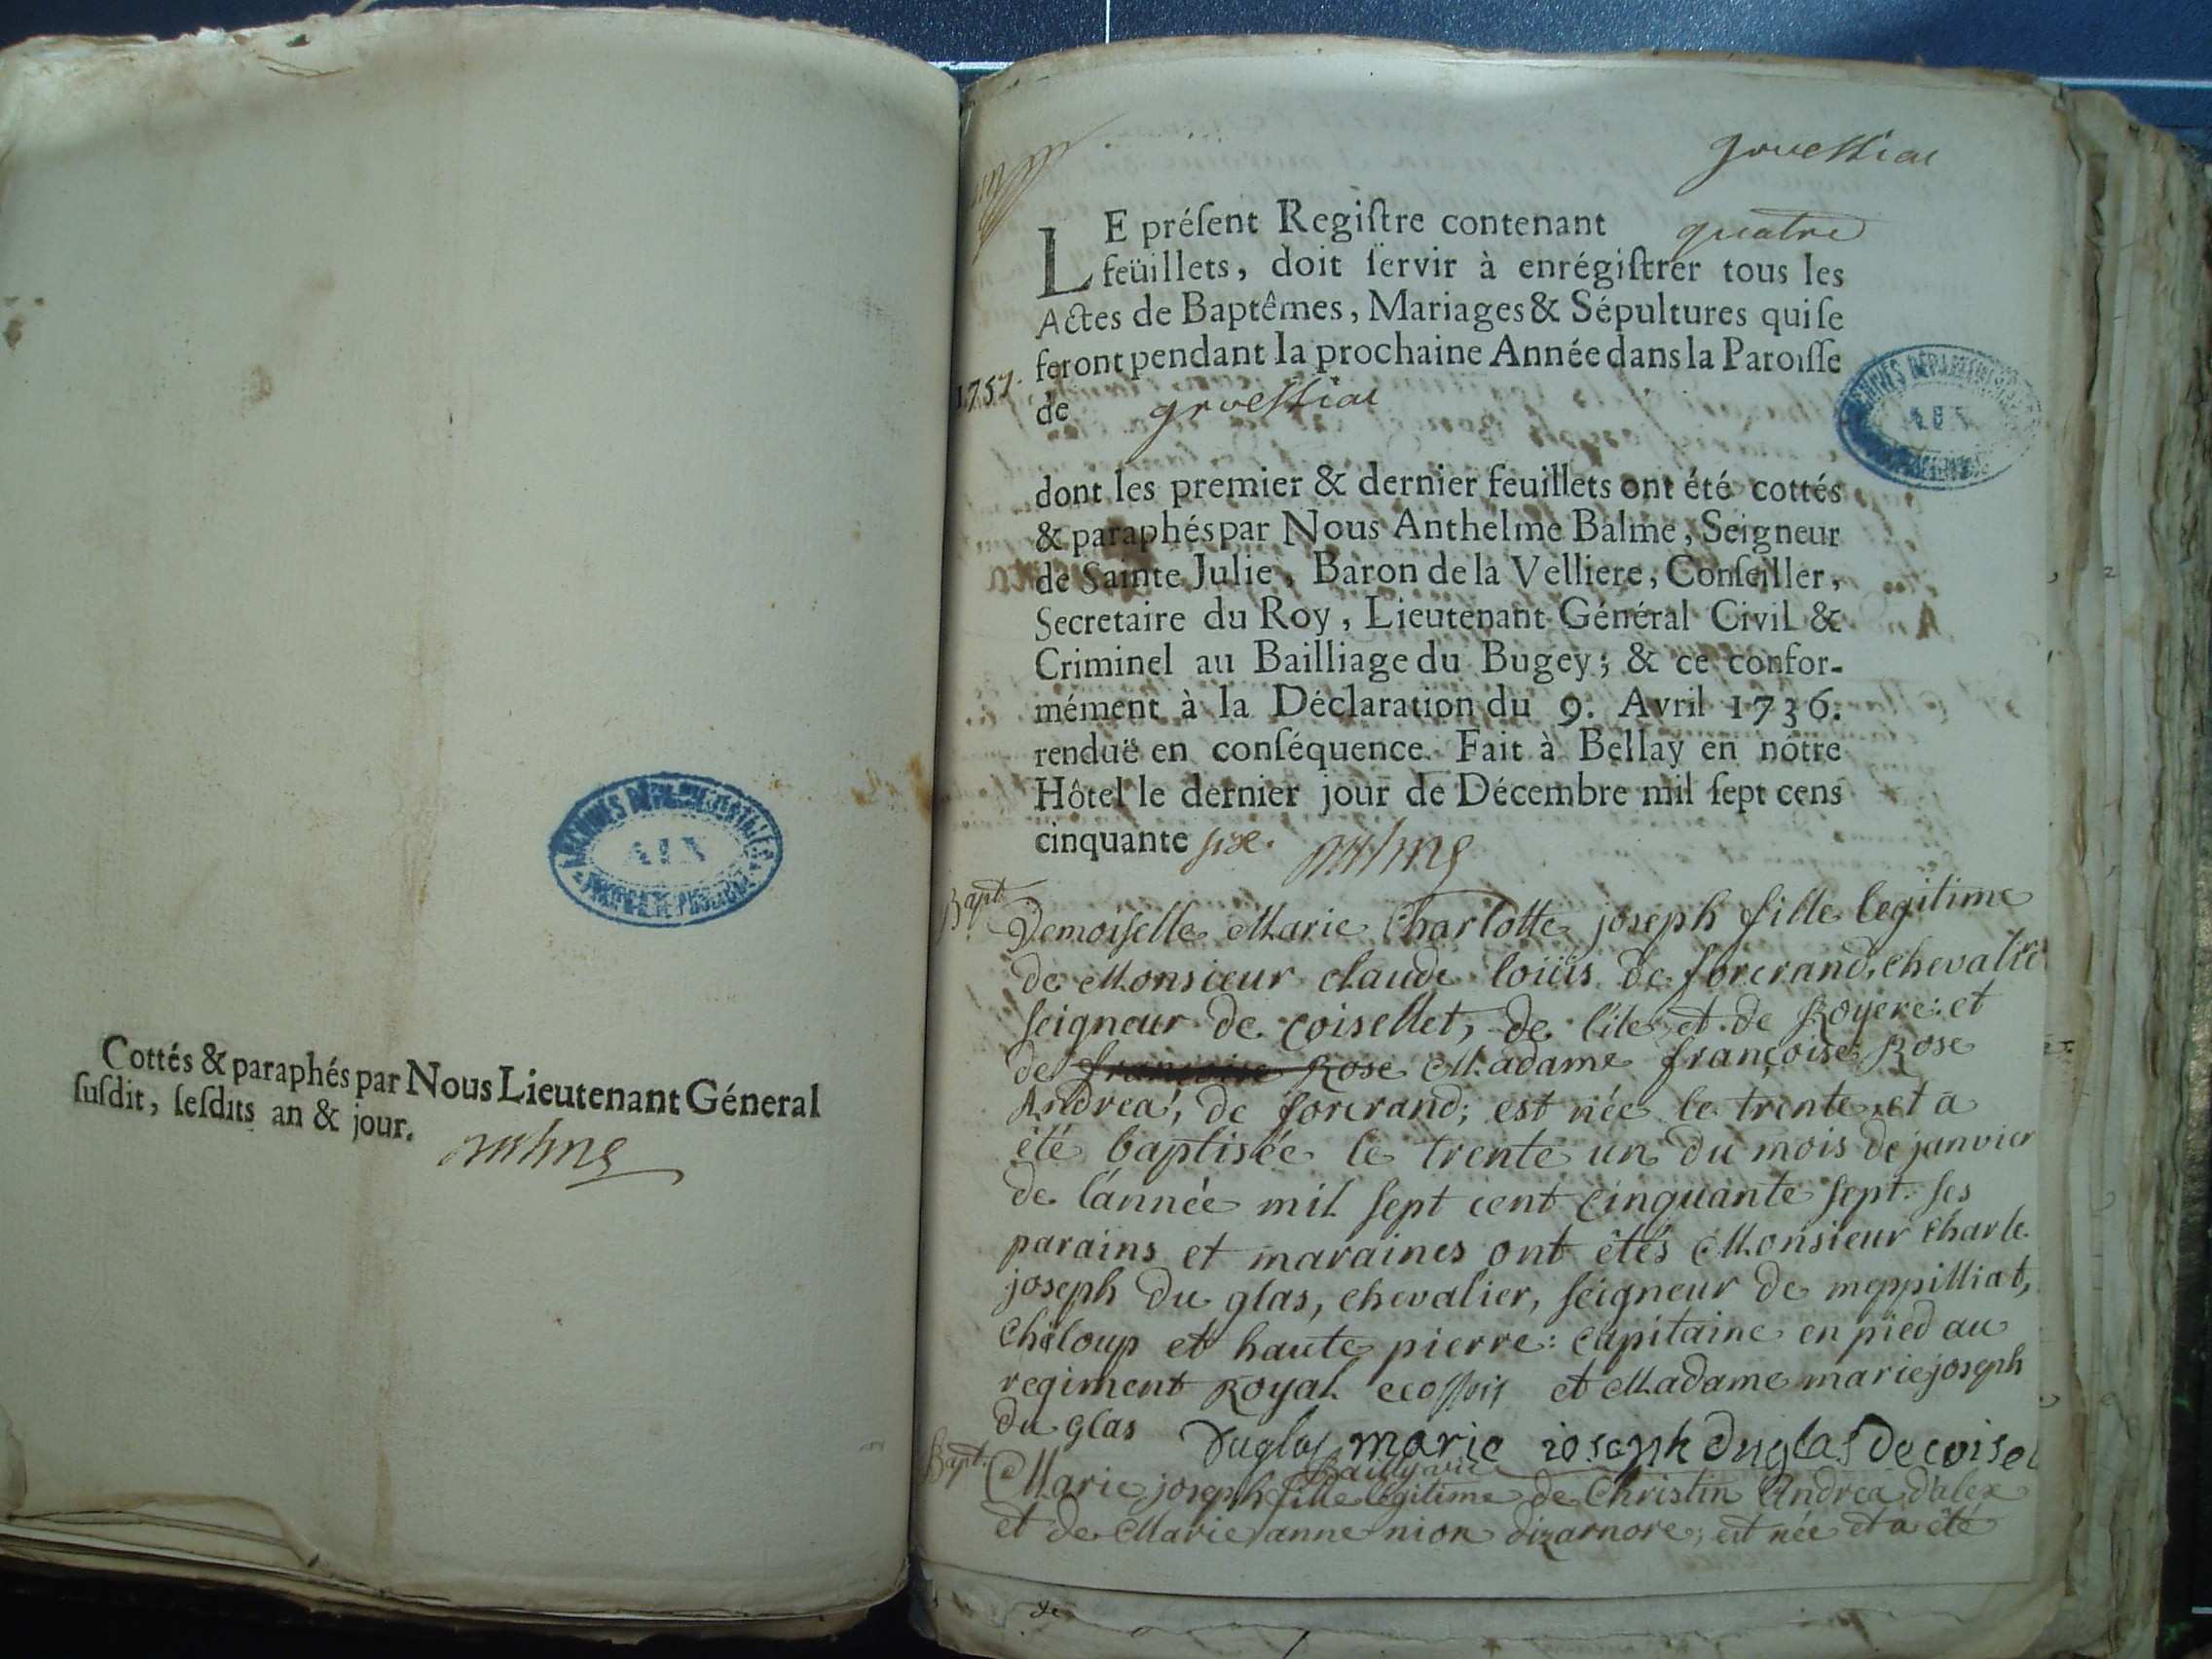 Cottés & paraphés par Nous Lieutenant Géneral
susdit, sesdits an & jour.
ARCHIVES DÉPARTEMENTALES
AIN
groessiat
LE préſent Regiſtre contenant quatre
feüillets, doit ſervir à enrégiſtrer tous les
Actes de Baptêmes, Mariages & Sépultures qui ſe
feront pendant la prochaine Année dans la Paroiſſe
1757.
de groessiat
ARCHIVES DÉPARTEMENTALES
AIN
dont les premier & dernier feuillets ont été cottés
& paraphés par Nous Anthelme Balme, Seigneur
de Sainte Julie, Baron de la Velliere, Conſeiller,
Secretaire du Roy, Lieutenant Général Civil &
Criminel au Bailliage du Bugey; & ce confor-
mément à la Déclaration du 9. Avril 1736.
renduë en conſéquence. Fait à Bellay en nótre
Hôtel le dernier jour de Décembre mil ſept cens
cinquante six. Balme
Bapt.
Demoiselle Marie Charlotte joseph fille legitime
de Monsieur claude loüis de forcrand, chevalier
seigneur de coisellet, de l'ile et de Royere: et
de françoise Rose Madame françoise Rose
Andrea, de forcrand; est née le trente et a
été baptisée le trente un du mois de janvier
de l'année mil sept cent cinquante sept. ses
parains et maraines ont étés Monsieur charle
joseph du glas, chevalier, seigneur de meppilliat,
chéloup et haute pierre: capitaine en pied au
regiment Royal ecossois et Madame marie joseph
du glas Duglas marie ioseph duglas de coisel
Bailly vic
Bapt. Marie joseph fille legitime de Christin Andrea d'alex
et de Marie anne nion dizarnore; est née et a été